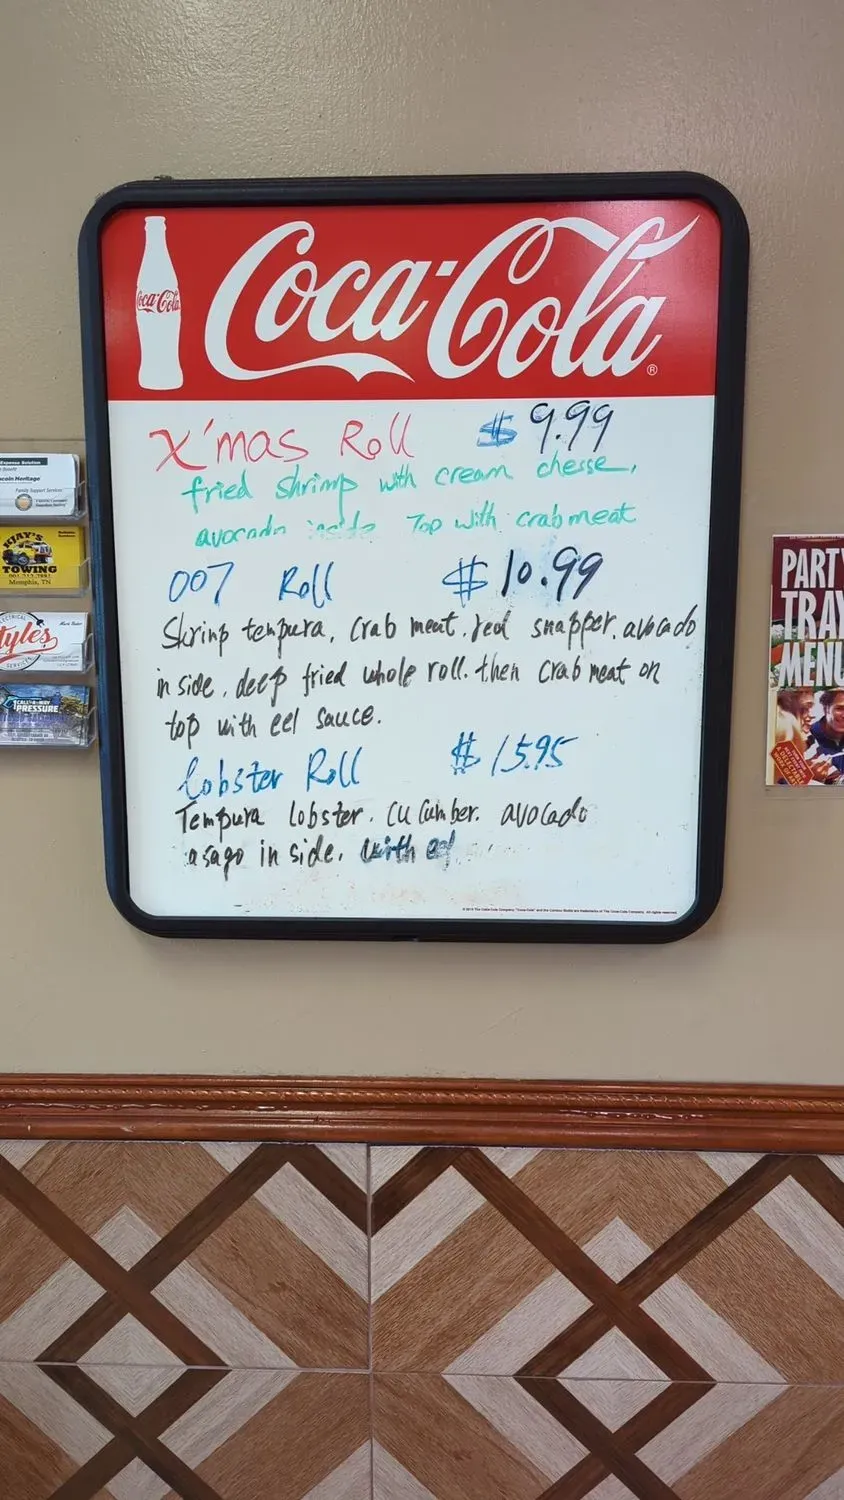 Coca-Cola
Coca-Cola
X'mas Roll $ 9.99
fried shrimp with cream chesse,
avocado inside Top with crabmeat
007 Roll $ 10.99
Shrimp tempura, crab meat, red snapper, avocado
in side, deep fried whole roll. then crab meat on
top with eel sauce.
lobster Roll $ 15.95
Tempura lobster. cucumber. avocado
asago in side. with
Expense Solution
Lincoln Heritage
Family Support Services
KJAY'S
TOWING
Memphis, TN
tyles
CALL-A-WAY
PRESSURE
PARTY
TRAY
MENU